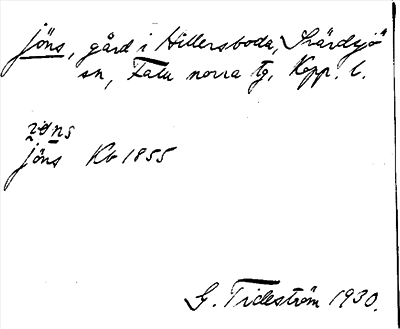 jöns, gård i Hillersboda, Svärdsjö
sn, Falu norra tg, Kopp. l.
jöns Kb 1855
G. Tideström 1930.